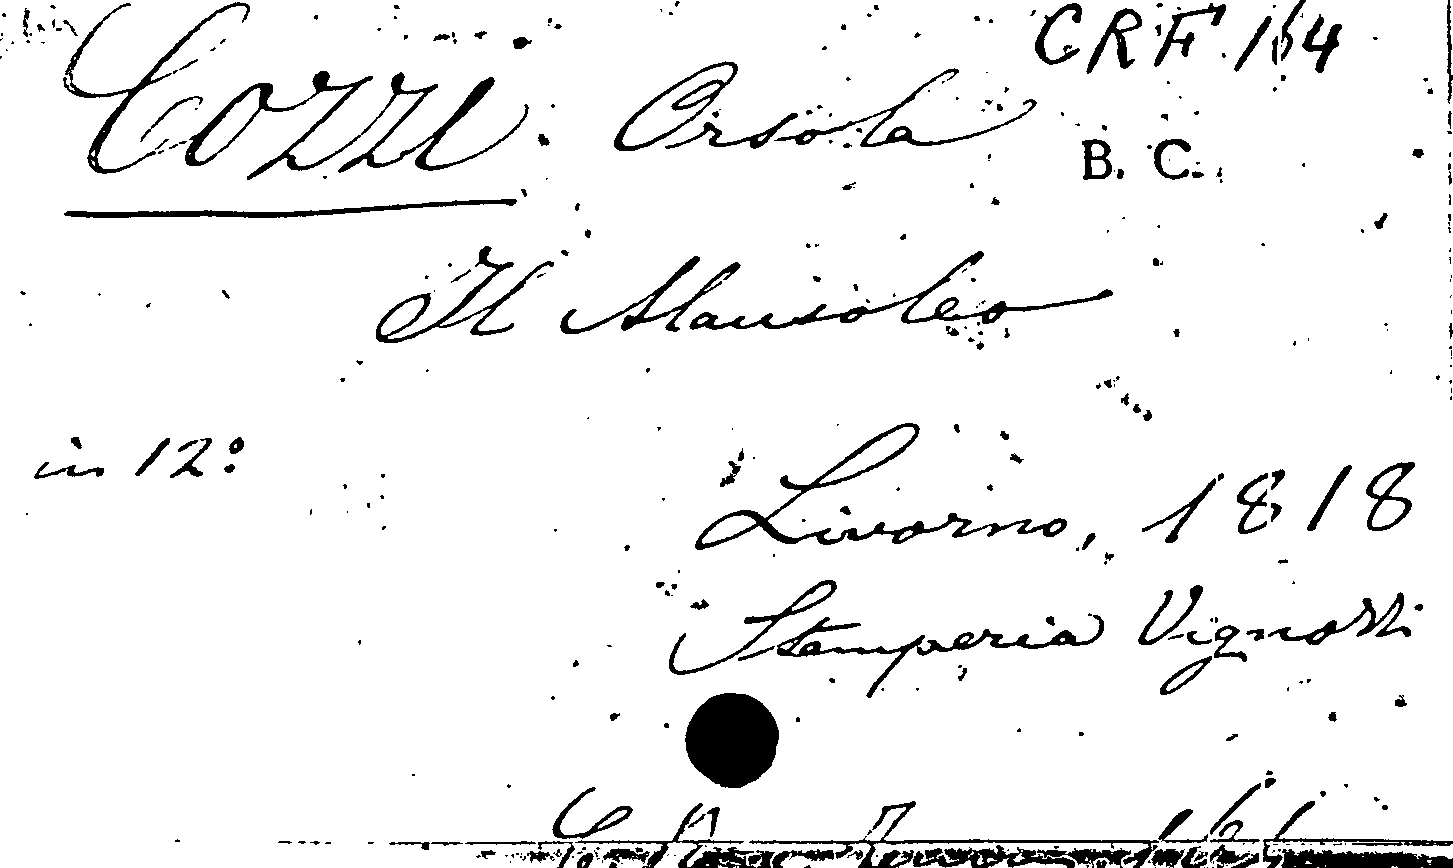 CRF 164
Cozzi Orsola
B. C.
Il Mausoleo
in 12º
Livorno, 1818
Stamperia Vignozzi